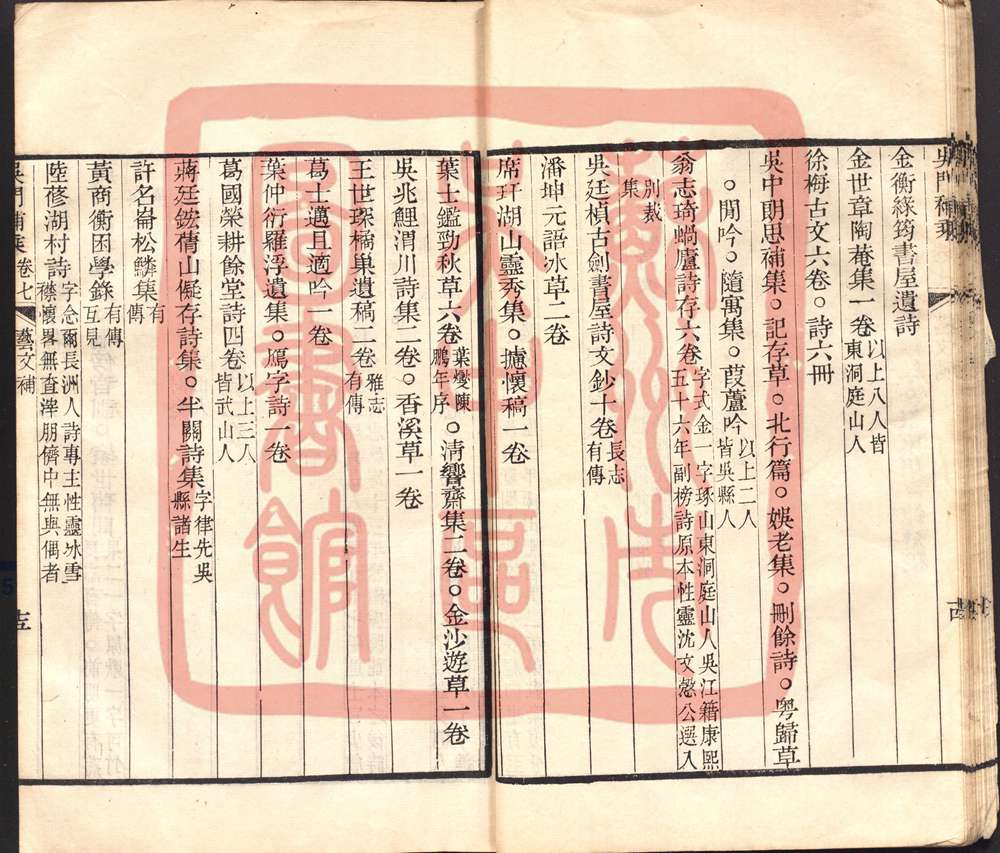 金衡綠筠書屋遺詩
金世章陶菴集一卷以上八人皆東洞庭山人
徐梅古文六卷○詩六冊
吳中朗思補集○記存草○北行篇○娛老集○刪餘詩○粤歸草
○閒吟○隨寓集○葭蘆吟以上二人皆吳縣人
翁志琦蝸廬詩存六卷字式金一字琢山東洞庭山人吳江籍康熙五十六年副榜詩原本性靈沈文慤公選入
別裁集
吳廷楨古劍書屋詩文鈔十卷長志有傳
潘坤元語冰草二卷
席玕湖山靈秀集○攄懷稿一卷
葉士鑑勁秋草六卷葉燮陳鵬年序○清響齋集二卷○金沙遊草一卷
吳兆鯉渭川詩集二卷○香溪草一卷
王世琛橘巢遺稿二卷雅志有傳
葛士邁且適吟一卷
葉仲衍羅浮遺集○鴈字詩一卷
葛國榮耕餘堂詩四卷以上三人皆武山人
蔣廷鋐倩山儗存詩集○半關詩集字律先吳縣諸生
許名崙松鱗集有傳
黃商衡困學錄有傳互見
陸㣧湖村詩字念爾長洲人詩專主性靈冰雪襟懷畧無查滓朋儕中無與偶者
吳門補乘卷七 藝文補 十五